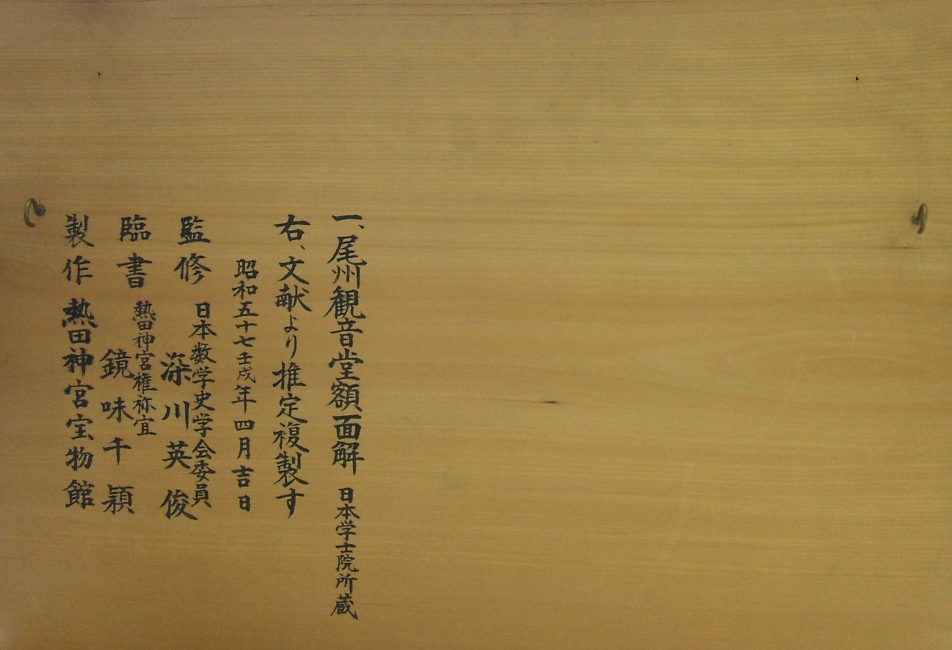 一、尾州観音堂額面解 日本学士院所蔵
右、文献より推定複製す
昭和五十七壬戌年四月吉日
監修 日本数学史学会委員
深川英俊
臨書 熱田神宮権祢宜
鏡味千穎
製作 熱田神宮宝物館